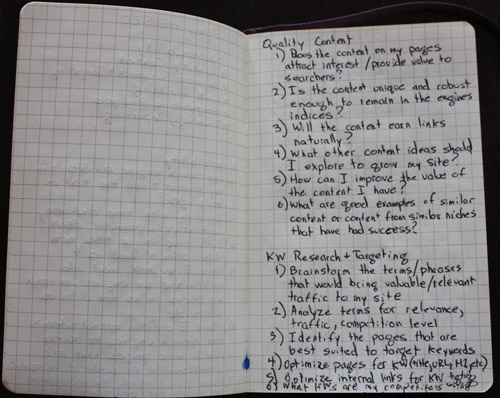 Quality Content
1) Does the content on my pages
attract interest/provide value to
searchers?
2) Is the content unique and robust
enough to remain in the engines
indices?
3) Will the content earn links
naturally?
4) What other content ideas should
I explore to grow my site?
5) How can I improve the value of
the content I have?
6) What are good examples of similar
content or content from similar niches
that have had success?
KW Research + Targeting
1) Brainstorm the terms/phrases
that would bring valuable/relevant
traffic to my site
2) Analyze terms for relevance,
traffic, competition level
3) Identify the pages that are
best suited to target keywords
4) Optimize pages for KW (title, URL, H1, etc)
5) Optimize internal links for KW
6) What KWs are my competitors using